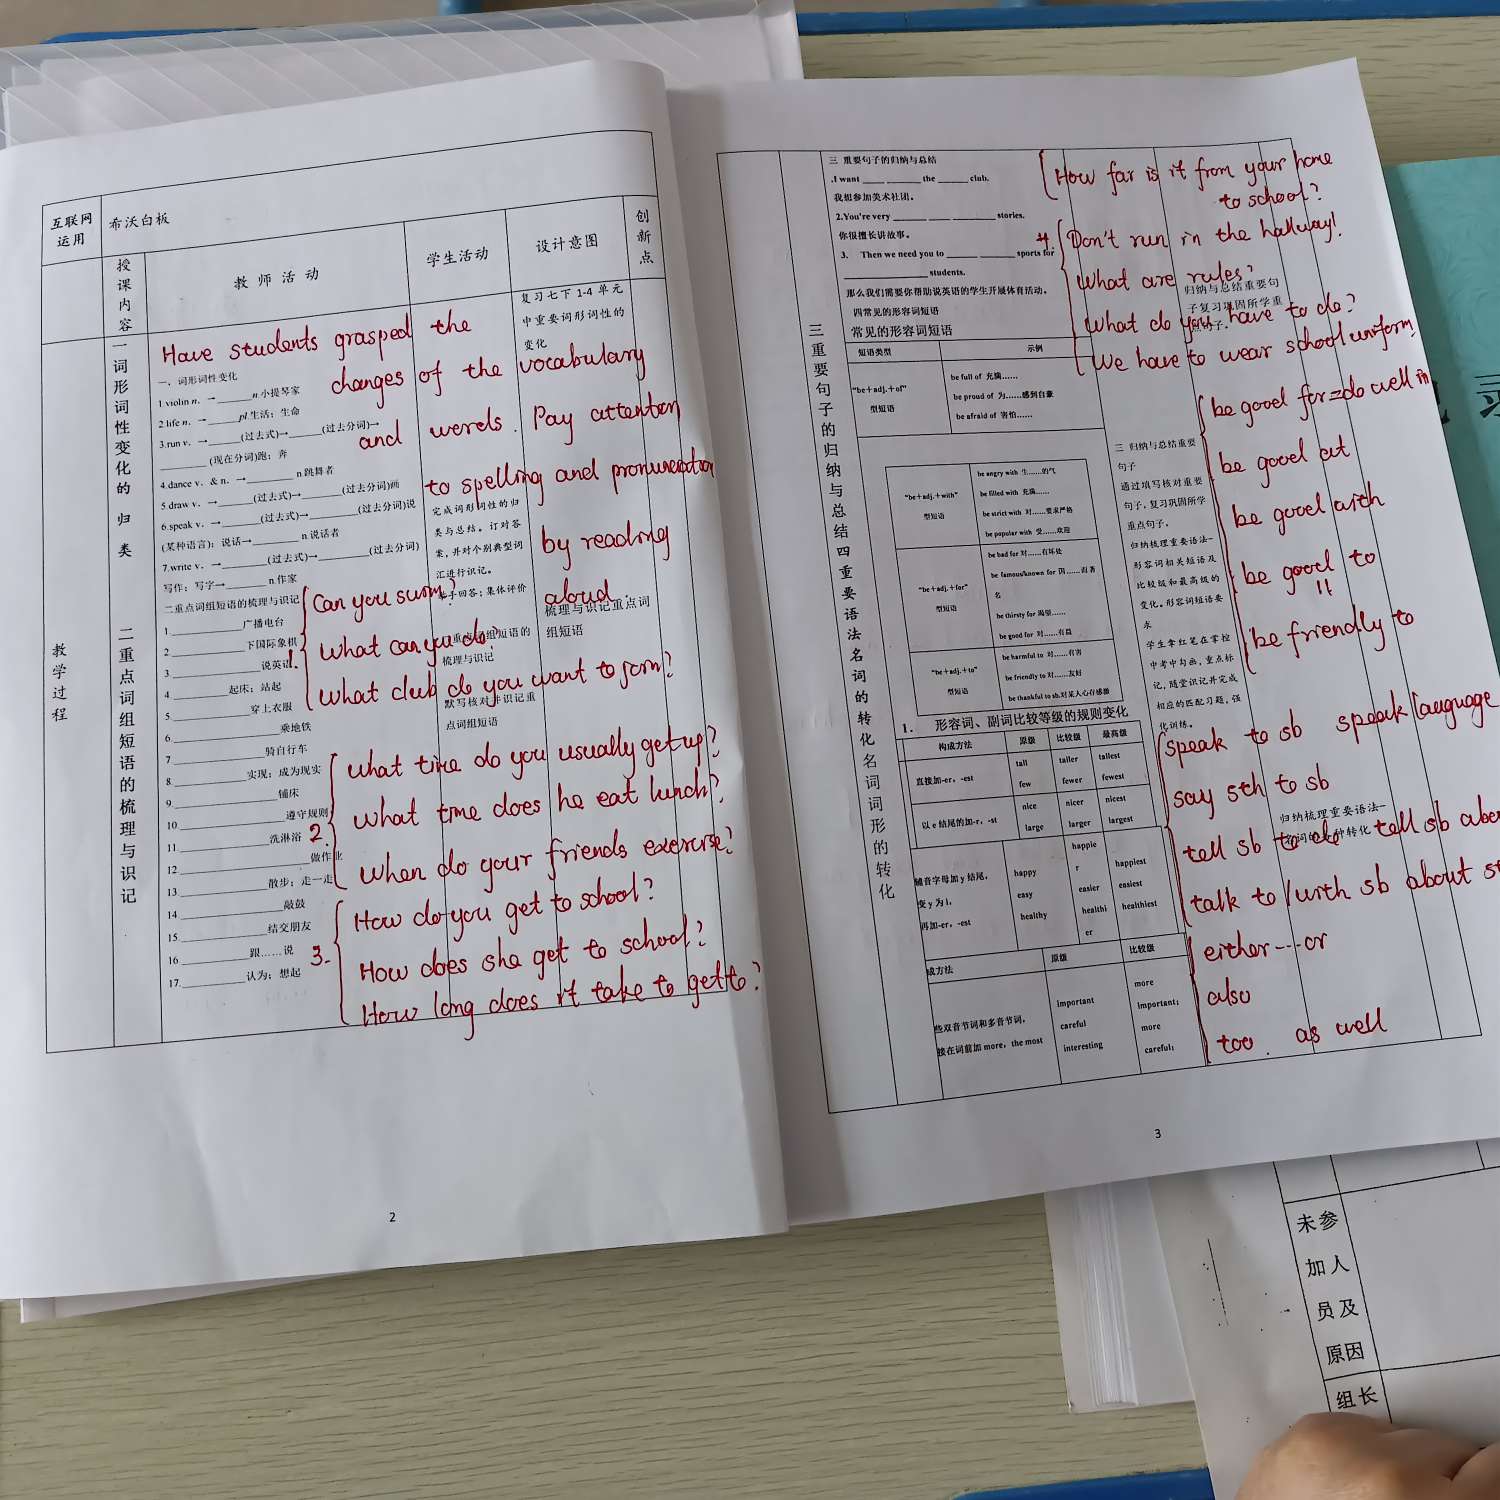 互联网
运用
希沃白板
授课内容
教 师 活 动
学生活动
设计意图
创新点
教学过程
一词形词性变化的归类
二重点词组短语的梳理与识记
复习七下 1-4 单元
中重要词形词性的
变化
Have students grasped the
changes of the vocabulary
and words. Pay attention
to spelling and pronunciation
by reading
aloud.
一、词形词性变化
1.violin n. →______n 小提琴家
2.life n. →______pl 生活；生命
3.run v. →______(过去式)→______(过去分词)→
________ (现在分词)跑；奔
4.dance v. & n. →________ n 跳舞者
5.draw v. →______(过去式)→______(过去分词)画
6.speak v. →______(过去式)→________(过去分词)说
(某种语言)；说话→________ n 说话者
7.write v. →______(过去式)→________(过去分词)
写作；写字→_______ n 作家
二重点词组短语的梳理与识记
1.____________广播电台
2____________下国际象棋
3____________说英语
4__________起床；站起
5____________穿上衣服
6____________乘地铁
7____________骑自行车
8____________实现；成为现实
9____________铺床
10____________遵守规则
11____________洗淋浴
12____________做作业
13____________散步；走一走
14____________敲鼓
15____________结交朋友
16____________跟……说
17.____________认为；想起
完成词形词性的归
类与总结。订对答
案，并对个别典型词
汇进行识记。
回答；集体评价
组短语的
梳理与识记
默写核对并识记重
点词组短语
梳理与识记重点词
组短语
1. Can you swim?
What can you do?
What club do you want to join?
2. What time do you usually get up?
What time does he eat lunch?
When do your friends exercise?
3. How do you get to school?
How does she get to school?
How long does it take to get to?
2
三重要句子的归纳与总结四重要语法名词的转化名词词形的转化
三 重要句子的归纳与总结
.I want ____ ______ the _____ club.
我想参加美术社团。
2.You're very ______ ____ ________ stories.
你很擅长讲故事。
3. Then we need you to ______ ______ sports for
______________ students.
那么我们需要你帮助说英语的学生开展体育活动。
四常见的形容词短语
常见的形容词短语
短语类型 示例
“be＋adj.＋of”
型短语
be full of 充满……
be proud of 为……感到自豪
be afraid of 害怕……
“be＋adj.＋with”
型短语
be angry with 生……的气
be filled with 充满……
be strict with 对……要求严格
be popular with 受……欢迎
“be＋adj.＋for”
型短语
be bad for 对……有坏处
be famous/known for 因……而著
名
be thirsty for 渴望……
be good for 对……有益
“be＋adj.＋to”
型短语
be harmful to 对……有害
be friendly to 对……友好
be thankful to sb.对某人心存感激
1. 形容词、副词比较等级的规则变化
构成方法 原级 比较级 最高级
直接加-er，-est
tall taller tallest
few fewer fewest
以 e 结尾的加-r，-st
nice nicer nicest
large larger largest
辅音字母加 y 结尾，
变 y 为 i，
再加-er，-est
happy happier happiest
easy easier easiest
healthy healthier healthiest
成方法 原级 比较级
些双音节词和多音节词，
接在词前加 more，the most
important more important；
careful more careful；
interesting
How far is it from your home
to school?
4 Don't run in the hallway!
What are rules?
What do you have to do?
We have to wear school uniform
归纳与总结重要句
子复习巩固所学重
点句子。
be good for=do well in
be good at
be good with
be good to
=
be friendly to
三 归纳与总结重要
句子
通过填写核对重要
句子，复习巩固所学
重点句子。
归纳梳理重要语法-
形容词相关短语及
比较级和最高级的
变化。形容词短语要
求
学生拿红笔在掌控
中考中勾画，重点标
记，随堂识记并完成
相应的匹配习题，强
化训练。
speak to sb speak language
say sth to sb
tell sb to do tell sb about
talk to / with sb about
归纳梳理重要语法-
either---or
also
too. as well
3
未参
加人
员及
原因
组长